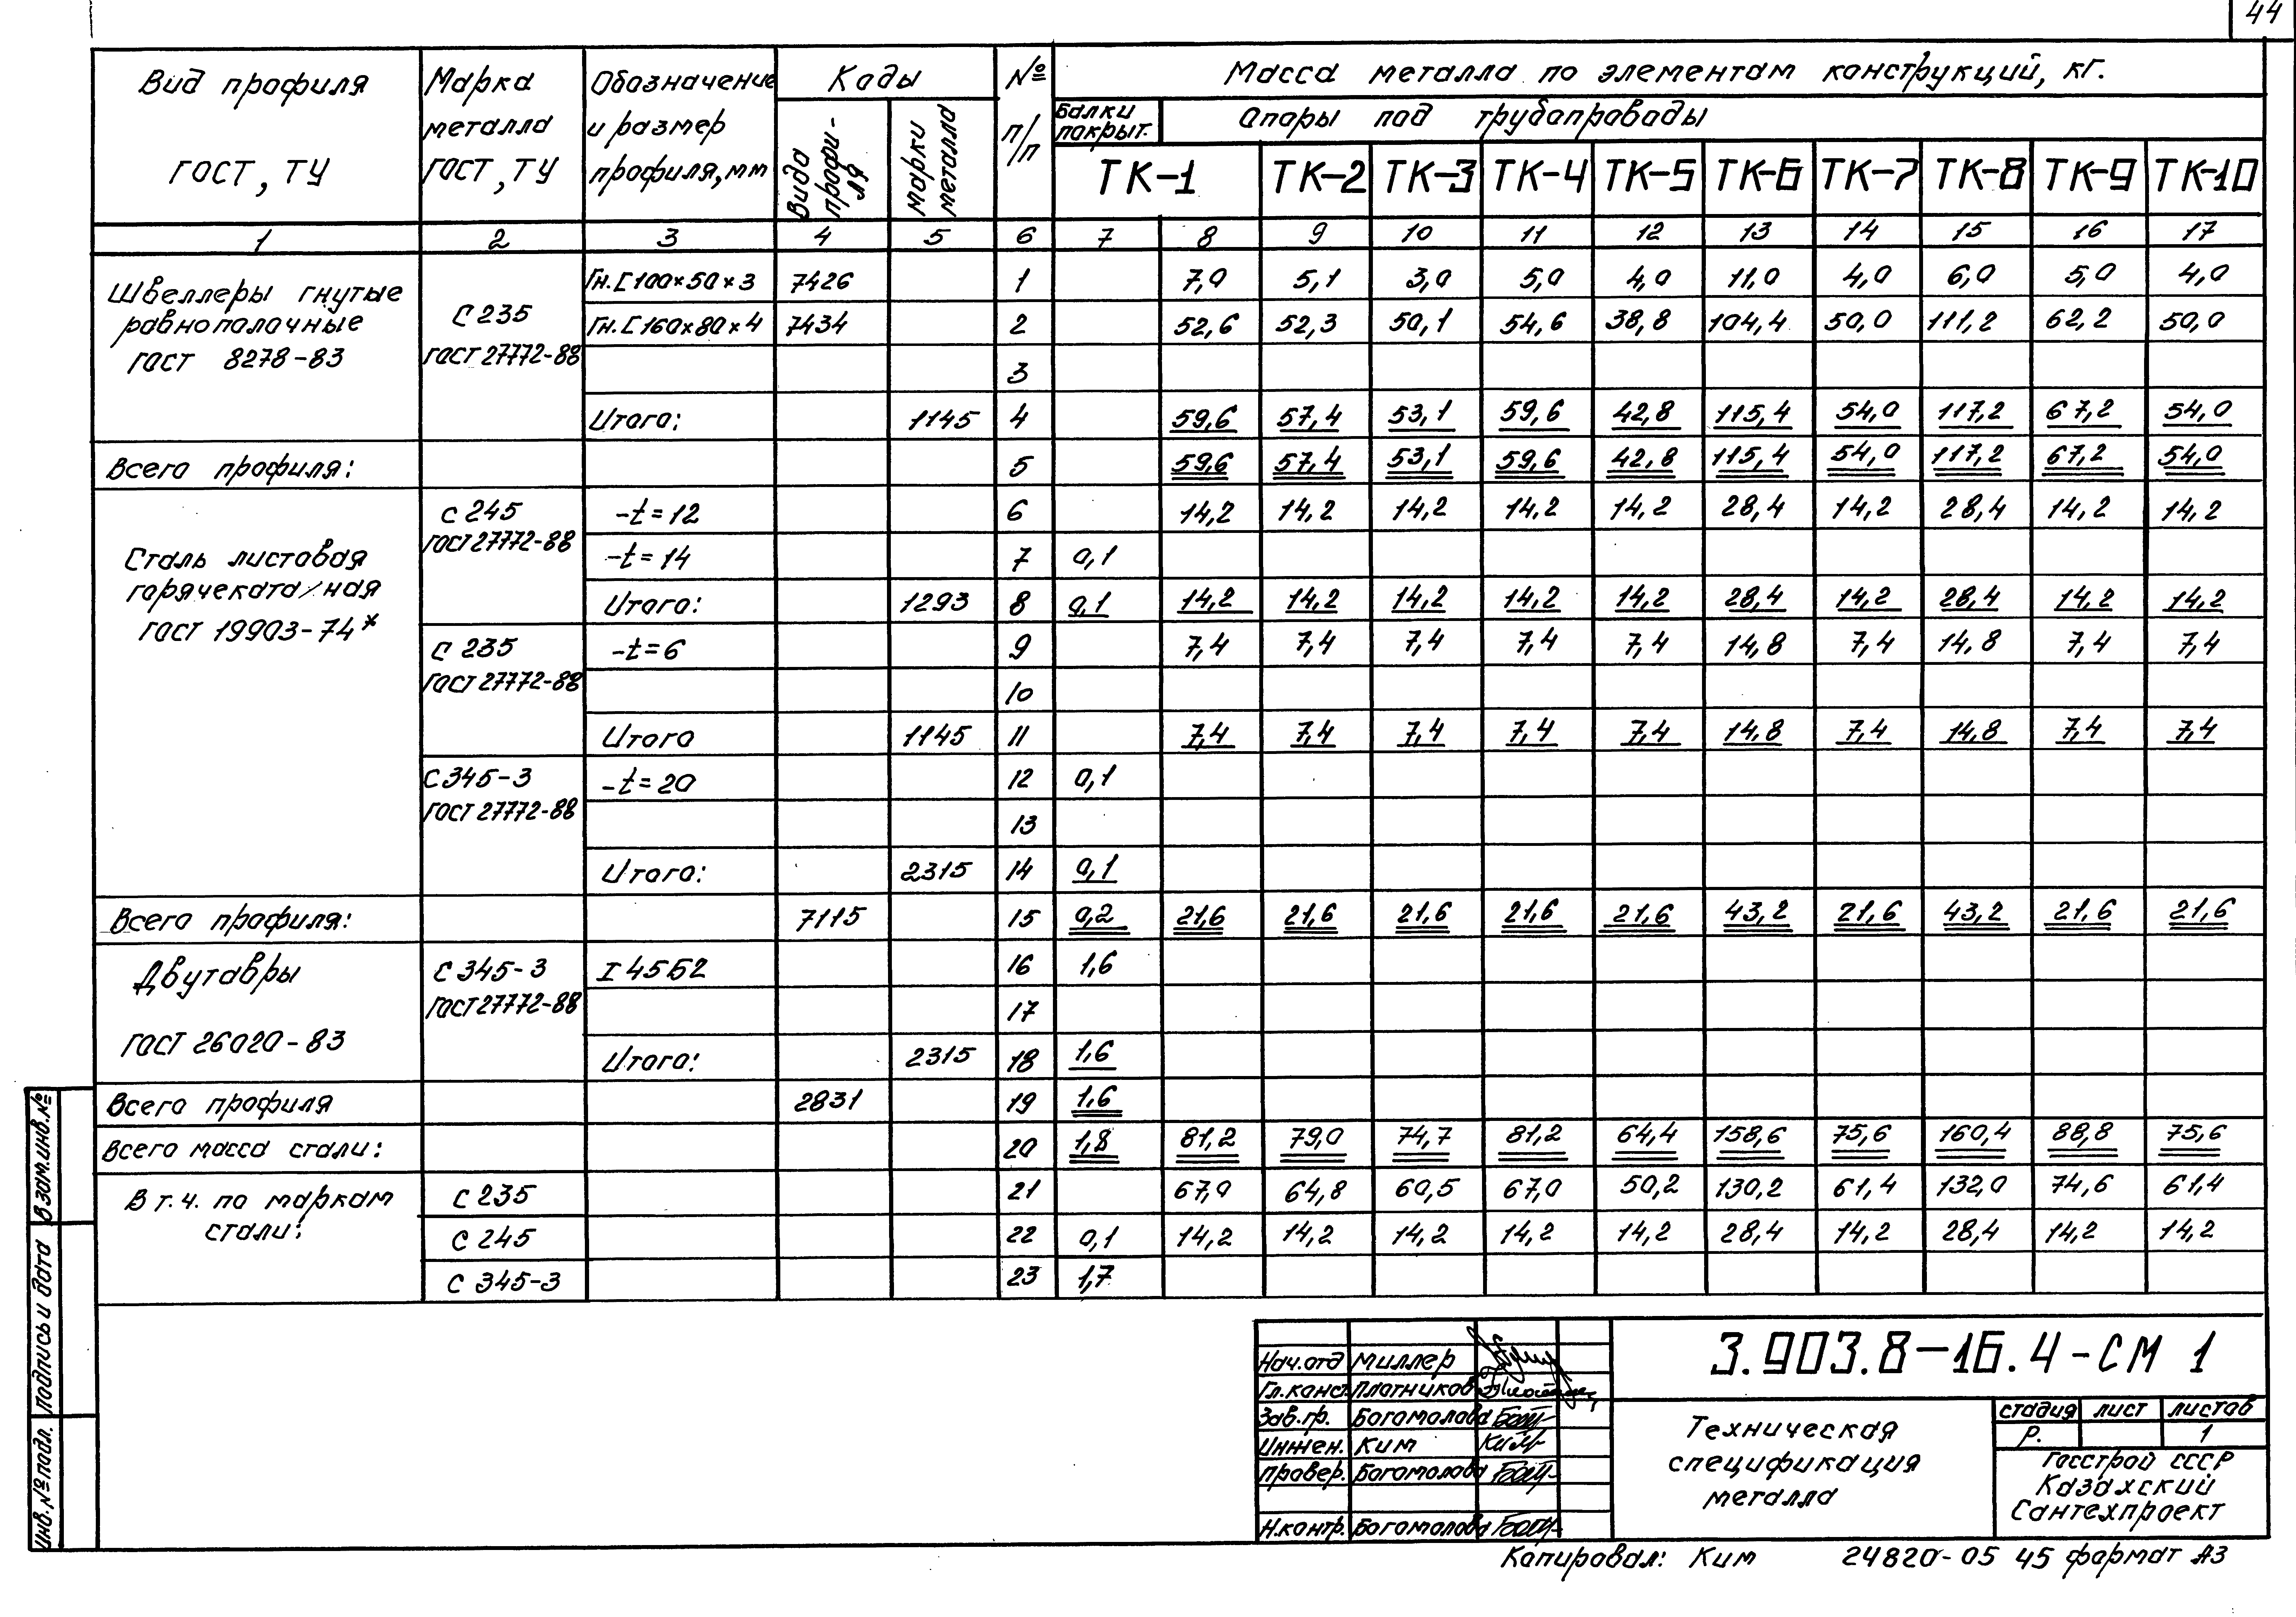 44
Вид профиля ГОСТ, ТУ | Марка металла ГОСТ, ТУ | Обозначение и размер профиля, мм | Коды | № п/п | Масса металла по элементам конструкций, кг.
Вида профи-ля | марки металла | Балки покрыт. | Опоры под трубопроводы
ТК-1 | ТК-2 | ТК-3 | ТК-4 | ТК-5 | ТК-6 | ТК-7 | ТК-8 | ТК-9 | ТК-10
1 | 2 | 3 | 4 | 5 | 6 | 7 | 8 | 9 | 10 | 11 | 12 | 13 | 14 | 15 | 16 | 17
Швеллеры гнутые равнополочные ГОСТ 8278-83 | С 235 ГОСТ 27772-88 | Гн.[100×50×3 | 7426 | 1 | 7,0 | 5,1 | 3,0 | 5,0 | 4,0 | 11,0 | 4,0 | 6,0 | 5,0 | 4,0
Гн.[160×80×4 | 7434 | 2 | 52,6 | 52,3 | 50,1 | 54,6 | 38,8 | 104,4 | 50,0 | 111,2 | 62,2 | 50,0
3
Итого: | 1145 | 4 | 59,6 | 57,4 | 53,1 | 59,6 | 42,8 | 115,4 | 54,0 | 117,2 | 67,2 | 54,0
Всего профиля: | 5 | 59,6 | 57,4 | 53,1 | 59,6 | 42,8 | 115,4 | 54,0 | 117,2 | 67,2 | 54,0
Сталь листовая горячеката/ная ГОСТ 19903-74* | С 245 ГОСТ 27772-88 | -t=12 | 6 | 14,2 | 14,2 | 14,2 | 14,2 | 14,2 | 28,4 | 14,2 | 28,4 | 14,2 | 14,2
-t=14 | 7 | 0,1
Итого: | 1293 | 8 | 0,1 | 14,2 | 14,2 | 14,2 | 14,2 | 14,2 | 28,4 | 14,2 | 28,4 | 14,2 | 14,2
С 235 ГОСТ 27772-88 | -t=6 | 9 | 7,4 | 7,4 | 7,4 | 7,4 | 7,4 | 14,8 | 7,4 | 14,8 | 7,4 | 7,4
10
Итого | 1145 | 11 | 7,4 | 7,4 | 7,4 | 7,4 | 7,4 | 14,8 | 7,4 | 14,8 | 7,4 | 7,4
С 345-3 ГОСТ 27772-88 | -t=20 | 12 | 0,1
13
Итого: | 2315 | 14 | 0,1
Всего профиля: | 7115 | 15 | 0,2 | 21,6 | 21,6 | 21,6 | 21,6 | 21,6 | 43,2 | 21,6 | 43,2 | 21,6 | 21,6
Двутавры ГОСТ 26020-83 | С 345-3 ГОСТ 27772-88 | I 45Б2 | 16 | 1,6
17
Итого: | 2315 | 18 | 1,6
Всего профиля | 2831 | 19 | 1,6
Всего масса стали: | 20 | 1,8 | 81,2 | 79,0 | 74,7 | 81,2 | 64,4 | 158,6 | 75,6 | 160,4 | 88,8 | 75,6
В т.ч. по маркам стали: | С 235 | 21 | 67,0 | 64,8 | 60,5 | 67,0 | 50,2 | 130,2 | 61,4 | 132,0 | 74,6 | 61,4
С 245 | 22 | 0,1 | 14,2 | 14,2 | 14,2 | 14,2 | 14,2 | 28,4 | 14,2 | 28,4 | 14,2 | 14,2
С 345-3 | 23 | 1,7
Взам.инв.№
Подпись и дата
Инв.№ подл.
3.903.8-16.4-СМ 1
Нач.отд Миллер
Гл.конст. Плотников
Зав.гр. Богомолова
Инжен. Ким Ким
Провер. Богомолова
Н.контр. Богомолова
Техническая
спецификация
металла
стадия | лист | листов
Р. | 1
Госстрой СССР
Казахский
Сантехпроект
Копировал: Ким 24820-05 45 формат А3